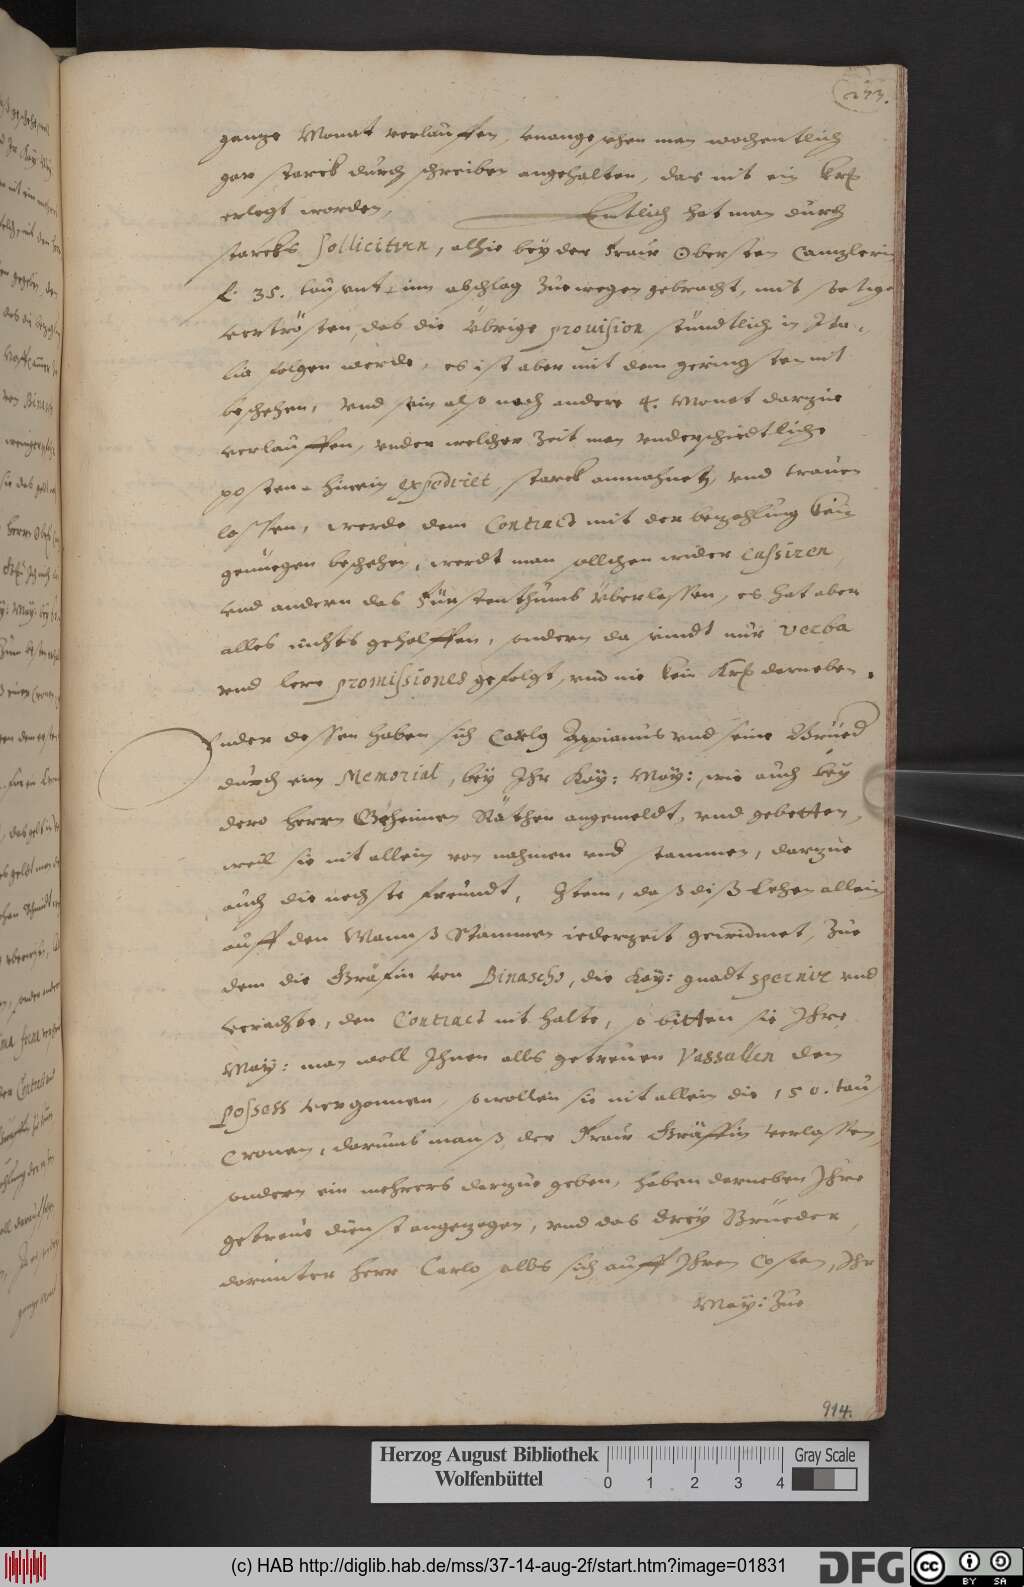 273.
gantze Monat verlauffen, vnangesehen man wochentlich
gar starck durch schreiben angehalten, das nit ein Krh
erlegt worden, Entlich hat man durch
starckes sollicitirn, alhie bey der Fraw Obersten Cantzlerin
f. 35. tausent im abschlag zue wegen gebracht, mit
vertrösten, das die übrige prouision stündtlich in Ita-
lia folgen werde, es ist aber mit dem geringsten nit
beschehen, vnd sein also noch andere 4. Monat darzue
verlauffen, vnder welcher zeit man vnderschiedtliche
posten hinein expedirt, starck anmahnet, vnd trauen
lassen, werde dem Contract mit der bezahlung kein
genüegen beschehen, werdt man sollchen wider cassiren,
vnd andern das Fürstenthumb überlassen, es hat aber
alles nichts geholffen, sondern da sindt nur verba
vnd lere promissiones gefolgt, vnd nie kein Krh darneben.
Vnder dessen haben sich Carlo Appianus vnd seine Brüed
durch ein Memorial, bey Ihr Kay: May: wie auch bey
dero herrn Geheimen Räthen angemeldt, vnd gebetten,
weil sie nit allein von nahmen vnd stammen, darzue
auch die nechste freundt, Item, daß diß Lehen allein
auff den Mannß Stammen iederzeit gewidmet, Zue
dem die Gräfin von Binascho, die Kay: gnadt spernir vnd
verachte, den Contract nit halte, so bitten sie Ihre
May: man woll Ihnen alls getreuen Vassallen den
possess vergonnen, so wollen sie nit allein die 150. taus
Cronen, darumb manß der Fraw Gräffin verlassen,
sondern ein mehrers darzue geben, haben darneben Ihre
getreue dienst angezogen, vnd das drey Brüeder,
darunter herr Carlo selbs sich auff Ihren Costen, Ihr
May: Zue
914.
Herzog August Bibliothek
Wolfenbüttel
0 1 2 3 4
Gray Scale
(c) HAB http://diglib.hab.de/mss/37-14-aug-2f/start.htm?image=01831
DFG
cc
BY SA